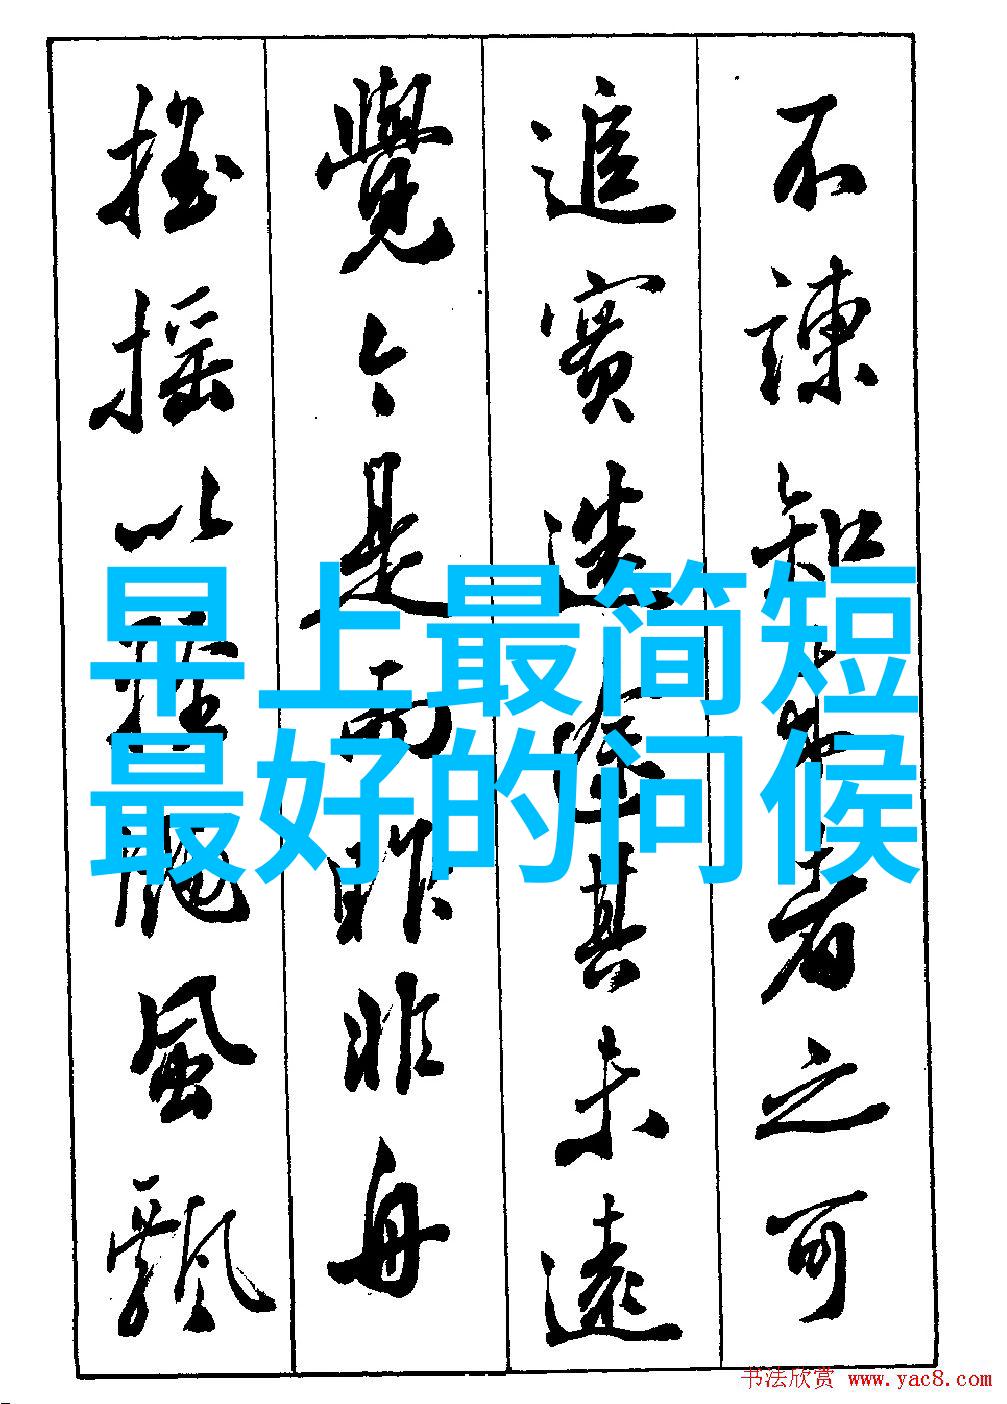 不諫知来者之可
追實迷途其未遠
覺今是而昨非舟
搖搖以輕颺風飄
早上最简短
最好的问候
书法欣赏 www.yac8.com